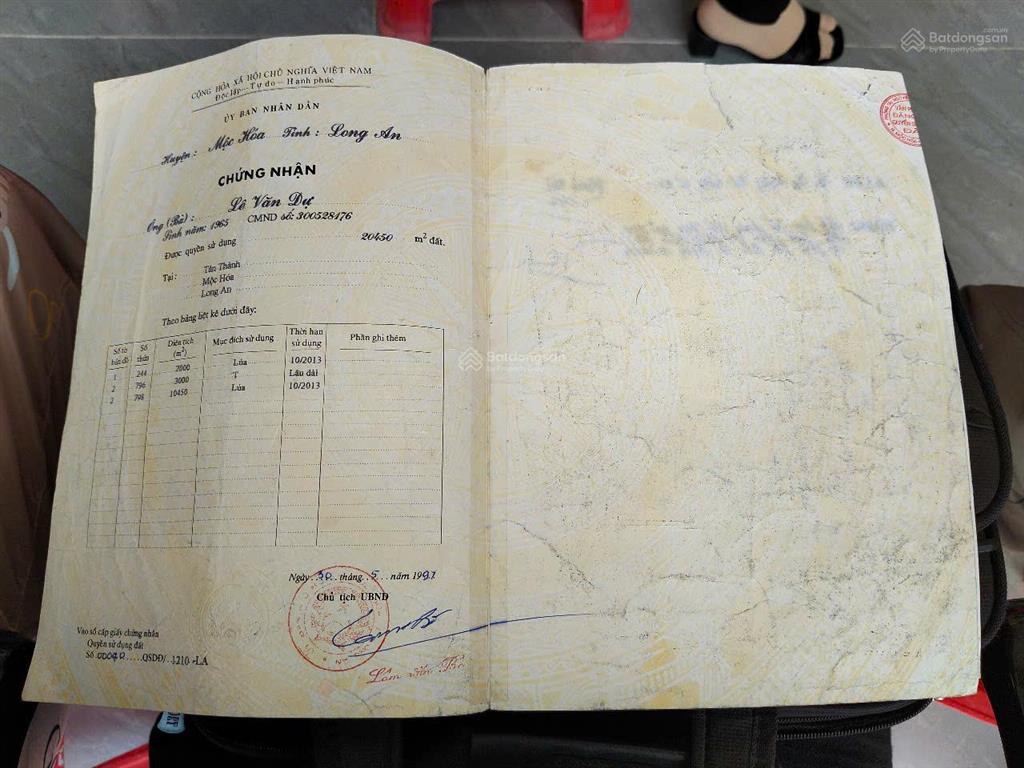 CỘNG HÒA XÃ HỘI CHỦ NGHĨA VIỆT NAM
Độc lập - Tự do - Hạnh phúc
ỦY BAN NHÂN DÂN
Huyện: Mộc Hóa Tỉnh: Long An
CHỨNG NHẬN
Ông (Bà): Lê Văn Dự
Sinh năm: 1965 CMND số: 300528176
Được quyền sử dụng 20450 m² đất.
Tại: Tân Thành
Mộc Hóa
Long An
Theo bảng liệt kê dưới đây:
Số tờ bản đồ Số thửa Diện tích (m²) Mục đích sử dụng Thời hạn sử dụng Phần ghi thêm
1 244 2000 Lúa 10/2013
2 796 3000 T Lâu dài
2 798 10450 Lúa 10/2013
Ngày 30 tháng 5 năm 1997
Chủ tịch UBND
Vào sổ cấp giấy chứng nhận
Quyền sử dụng đất
Số QSDĐ/ 1210 -LA
Lâm
Batdongsan.com.vn
by PropertyGuru
Batdongsan